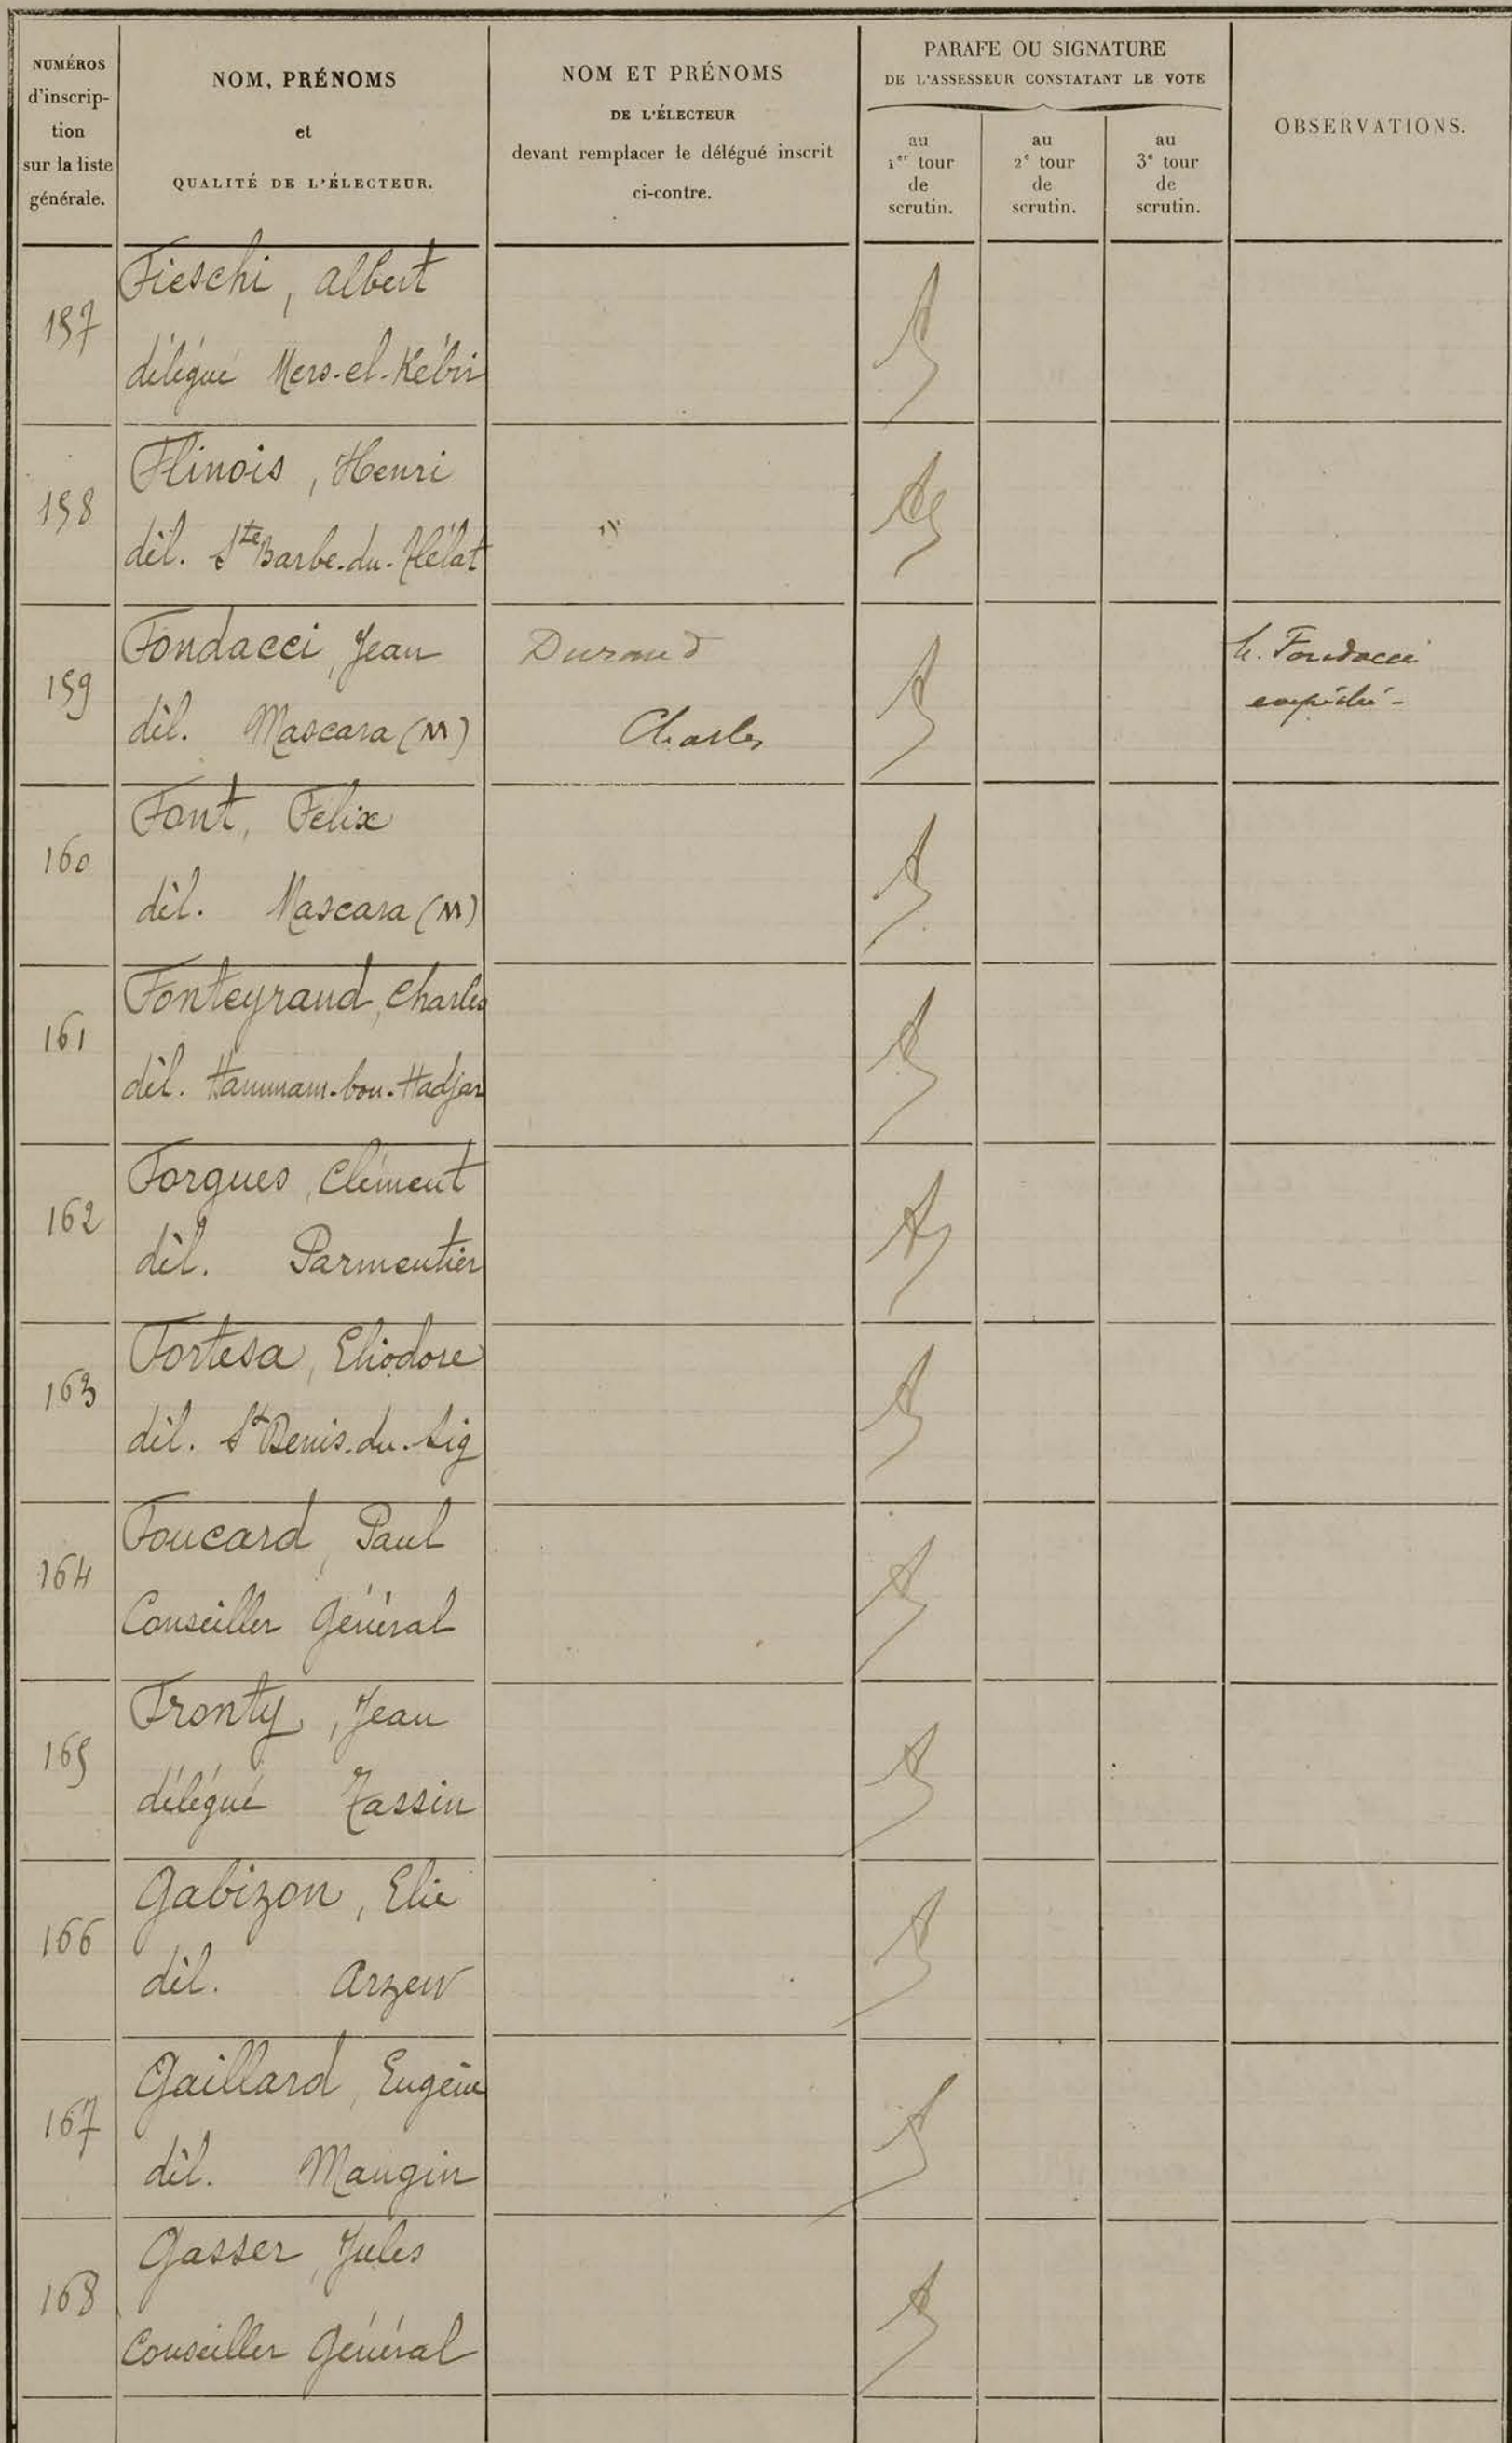 NUMÉROS
d'inscrip-
tion
sur la liste
générale.
NOM, PRÉNOMS
et
QUALITÉ DE L'ÉLECTEUR.
NOM ET PRÉNOMS
DE L'ÉLECTEUR
devant remplacer le délégué inscrit
ci-contre.
PARAFE OU SIGNATURE
DE L'ASSESSEUR CONSTATANT LE VOTE
au
1er tour
de
scrutin.
au
2e tour
de
scrutin.
au
3e tour
de
scrutin.
OBSERVATIONS.
157
Fieschi, Albert
délégué Mers-el-Kébir
158
Flinois, Henri
dél. Ste Barbe-du-Tlélat
"
159
Fondacci, Jean
dél. Mascara (M)
Durand
Charles
M. Fondacci
empêché -
160
Font, Félix
dél. Mascara (M)
161
Fonteyraud, Charles
dél. Hammam-bou-Hadjar
162
Forgues, Clément
dél. Parmentier
163
Fortesa, Eliodore
dél. St Denis-du-Sig
164
Foucard, Paul
Conseiller Général
165
Fronty, Jean
délégué Tassin
166
Gabizon, Elie
dél. Arzew
167
Gaillard, Eugène
dél. Mangin
168
Gasser, Jules
Conseiller Général